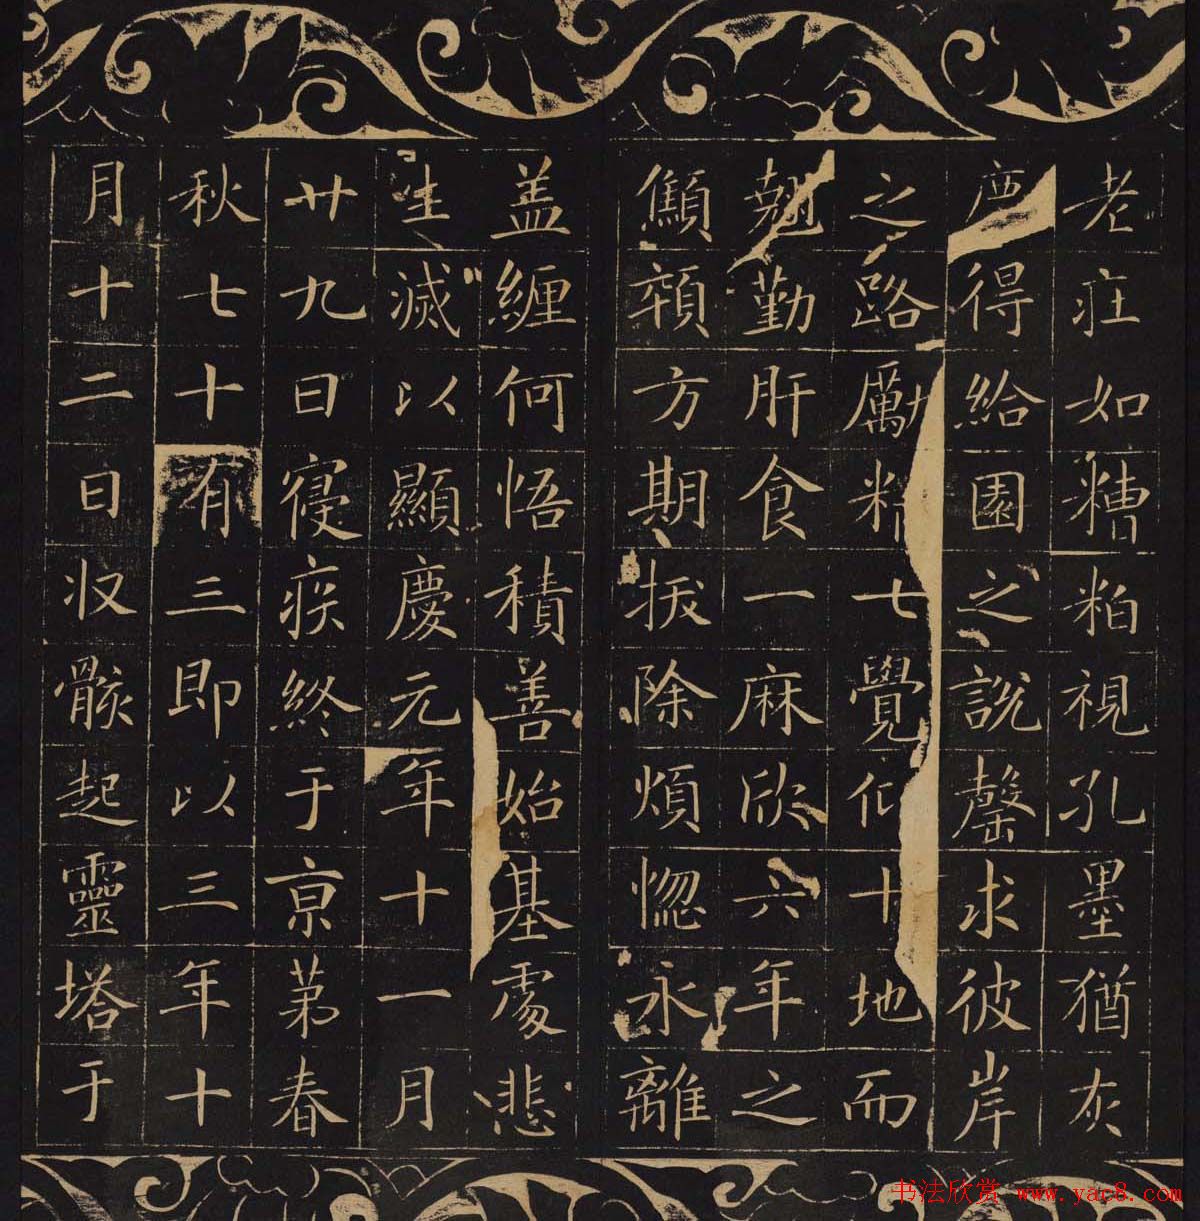 老疘如糟粕視孔墨猶灰
得給園之說罄求彼岸
之路勵精七覺仰十地而
翹勤肝食一麻欣六年之
顦顇方期拔除煩惚永離
盖纏何悟積善始基處悲
生滅以顯慶元年十一月
廿九日寑疾終于京苐春
秋七十有三即以三年十
月十二日収骸起靈塔于
书法欣赏 www.yac8.com